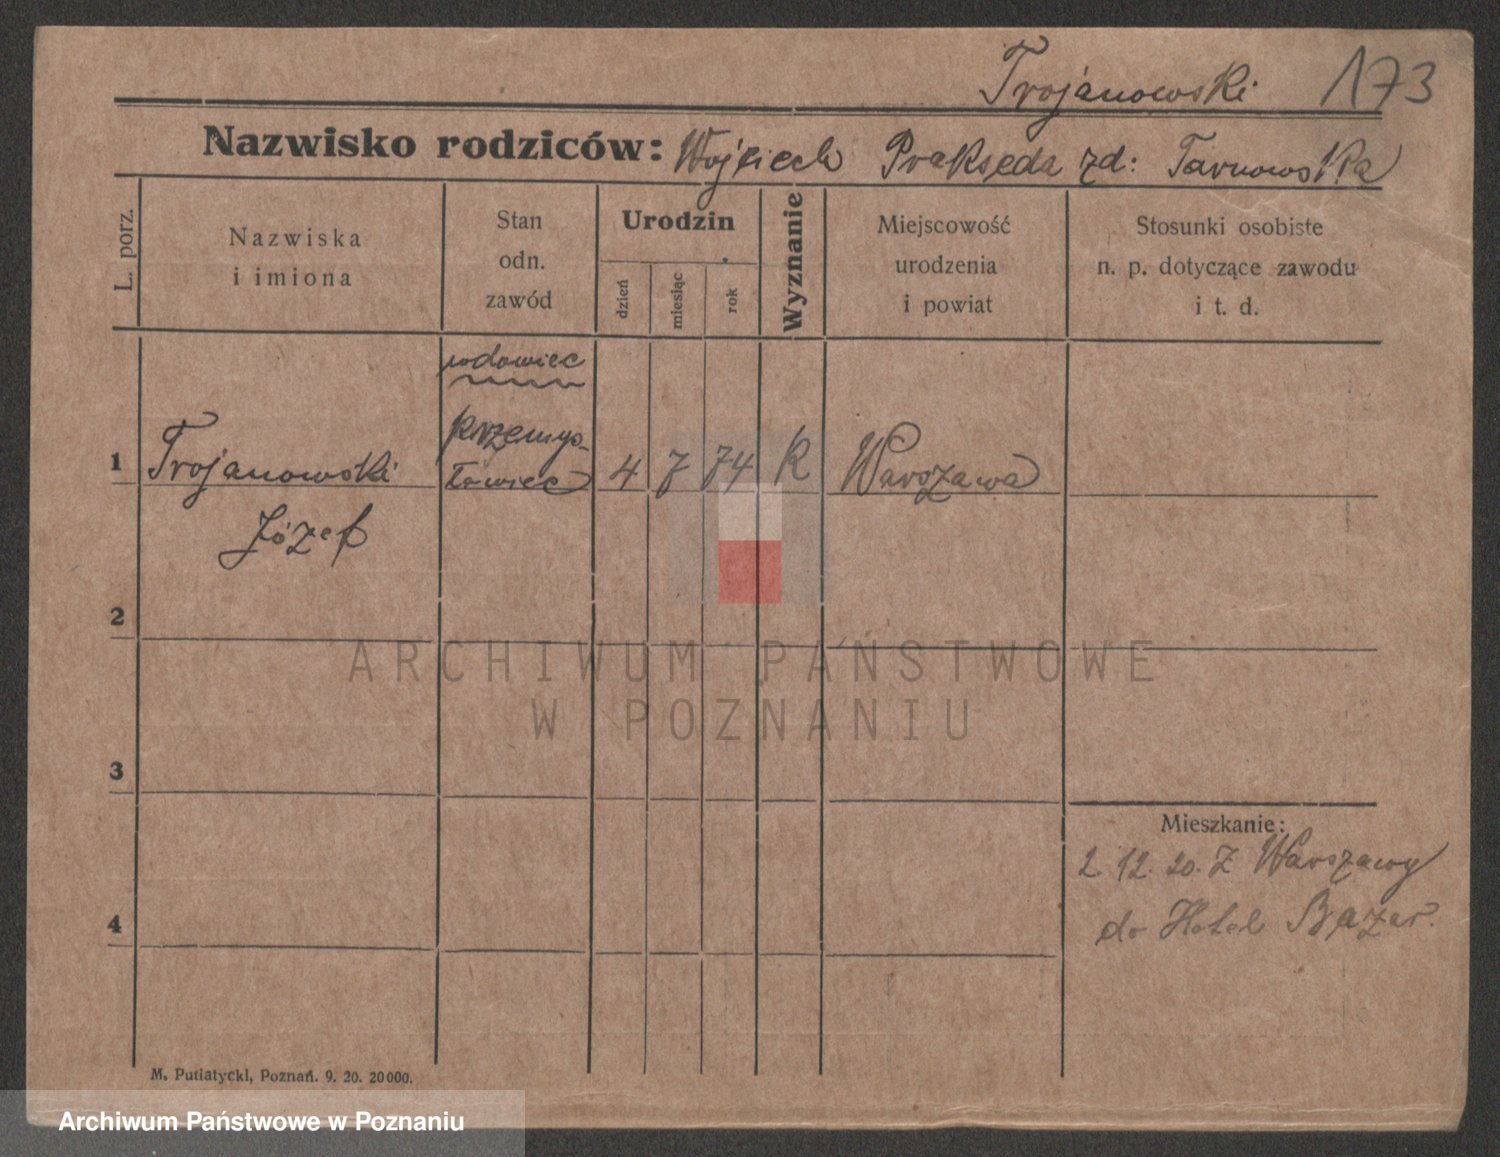 Trojanowski 173
Nazwisko rodziców: Wojciech Prakseda zd: Tarnowska
L. porz.
Nazwiska
i imiona
Stan
odn.
zawód
Urodzin
dzień
miesiąc
rok
Wyznanie
Miejscowość
urodzenia
i powiat
Stosunki osobiste
n. p. dotyczące zawodu
i t. d.
wdowiec
przemys-
1 Trojanowski łowiec 4 7 74 R Warszawa
Józef
2
ARCHIWUM PAŃSTWOWE
W POZNANIU
3
Mieszkanie:
2. 12. 20. Z Warszawy
do Hotel Bazar.
4
M. Putiatycki, Poznań. 9. 20. 20000.
Archiwum Państwowe w Poznaniu